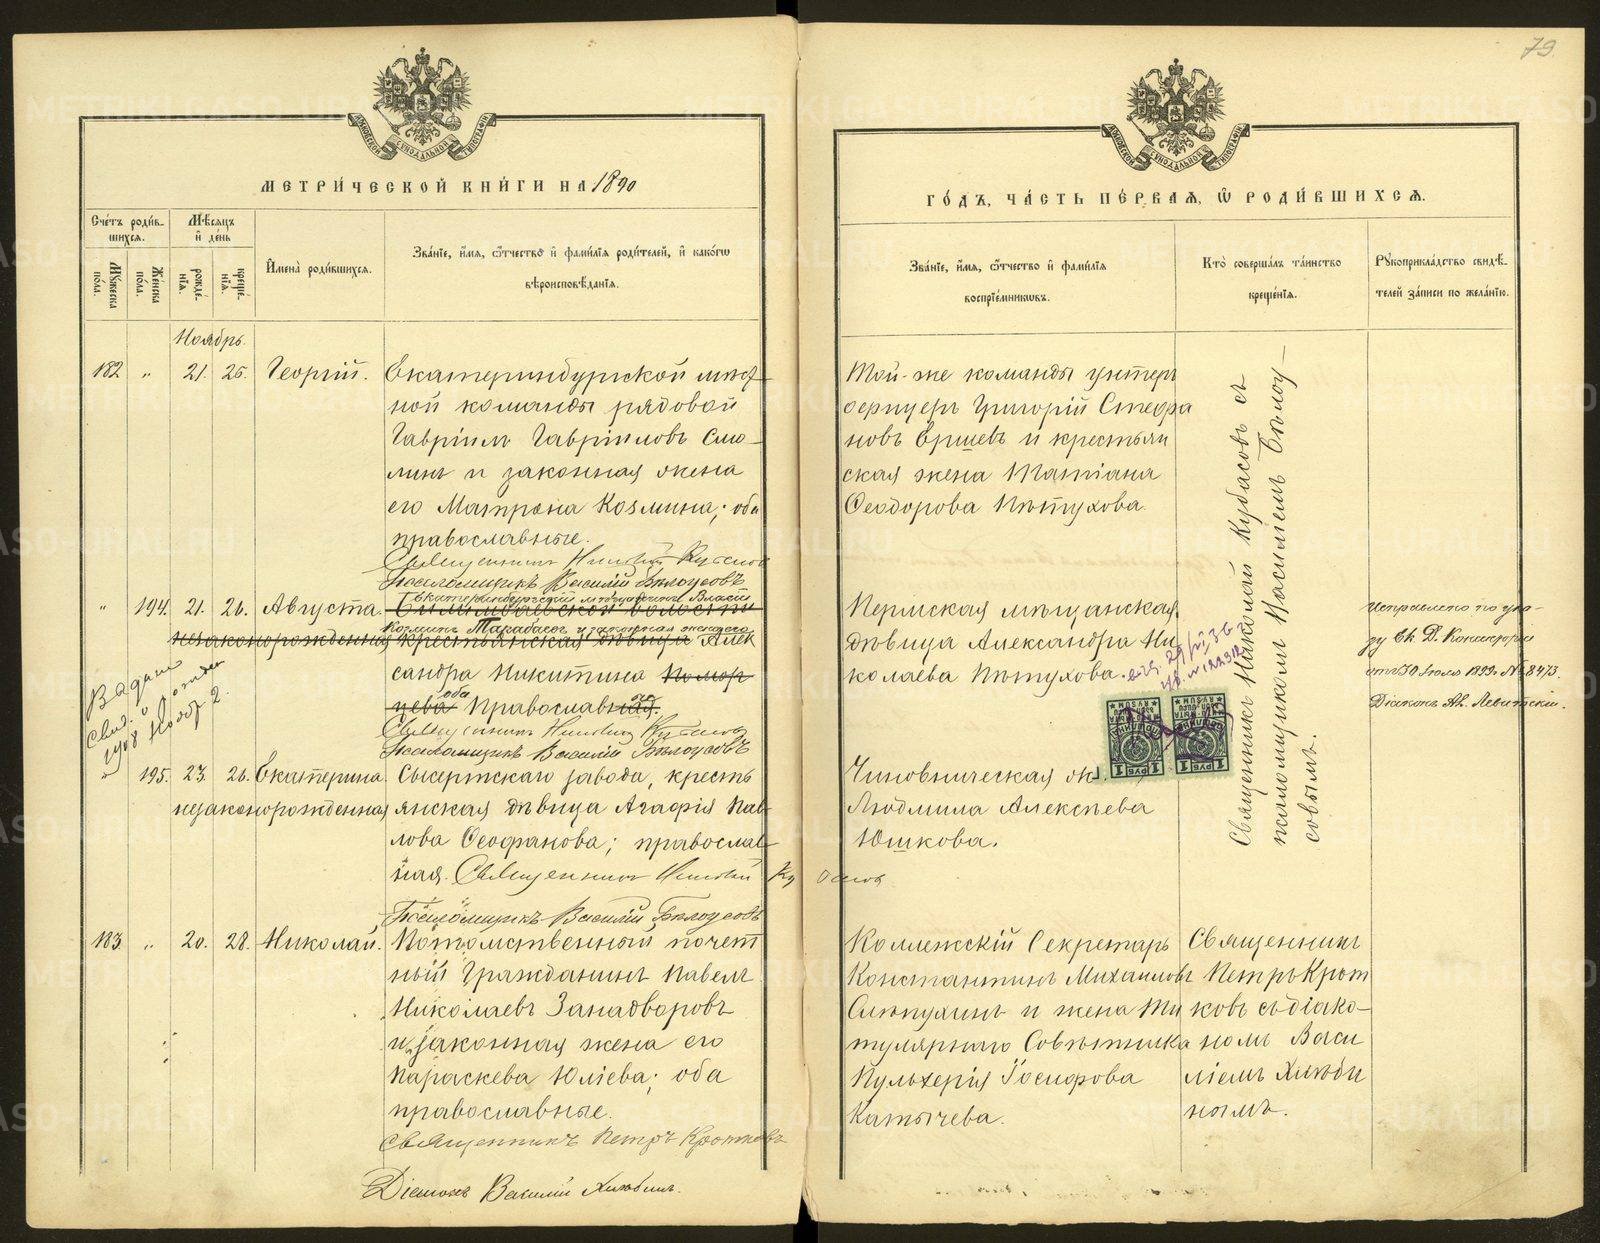 79.
МЕТРИ́ЧЕСКОЙ КНИ́ГИ НА 1890
ГО́ДЪ, ЧА́СТЬ ПЕ́РВАЯ, Ѡ҆ РОДИ́ВШИХСЯ.
Сче́тъ роди́в-
шихся.
Мꙋ́жеска по́ла.
Же́нска по́ла.
Мѣ́сяцъ и҆ де́нь
рожде́нїя.
креще́нїя.
И҆мена̀ роди́вшихся.
Зва́нїе, и҆́мя, ѻ҆́тчество и҆ фами́лїя роди́телей, и҆ како́гѡ
вѣроисповѣ́данїя.
Зва́нїе, и҆́мя, ѻ҆́тчество и҆ фами́лїя
воспрїе́мникѡвъ.
Кто̀ соверша́лъ та́инство
креще́нїя.
Рꙋкоприкла́дство свидѣ́-
телей за́писи по жела́нїю.
Ноябрь.
182 „ 21. 25. Георгій.
Екатеринбургской мѣст-
ной команды рядовой
Гавріилъ Гавріиловъ Смо-
линъ и законная жена
его Матрона Козмина; оба
православные.
Священникъ Николай Кубасовъ
Псаломщикъ Василій Бѣлоусовъ
Той-же команды унтеръ
офицеръ Григорій Стефа
новъ Ершевъ и крестьян
ская жена Татіана
Ѳеодорова Пѣтухова.
Священникъ Николай Кубасовъ съ
псаломщикомъ Василіемъ Бѣлоу-
совымъ.
„ 194. 21. 26. Августа.
незаконорожденная
Екатеринбургскій мѣщанинъ Власій
Билимбаевской волости
Козминъ Тарабаевъ и законная жена его
крестьянская дѣвица Алек
сандра Никитина
оба
Православная.
ые
Священникъ Николай Кубасовъ
Псаломщикъ Василій Бѣлоусовъ
Выдано
свид. о рожден
1908 Нояб. 2.
Пермская мѣщанская
дѣвица Александра Ни
колаева Пѣтухова.
1 РУБ 1
1 РУБ 1
Исправлено по ука-
зу Ек. Д. Консисторіи
отъ 30 Іюля 1899. № 8473.
Діаконъ Ал. Левитскій.
„ 195. 23. 26. Екатерина.
незаконорожденная
Сысертскаго завода, кресть
янская дѣвица Агафія Пав-
лова Ѳеофанова; православ-
ная. Священникъ Николай Кубасовъ
Псаломщикъ Василій Бѣлоусовъ
Чиновническая ж.
Людмила Алексѣева
Юшкова.
183 „ 20. 28. Николай.
Потомственный почет
ный Гражданинъ Павелъ
Николаевъ Занадворовъ
и законная жена его
Параскева Юліева; оба
православные.
Священникъ Петръ Кротковъ
Діаконъ Василій Хлюбинъ.
Коллежскій Секретарь
Константинъ Михаиловъ
Слѣпухинъ и жена Ти
тулярнаго Совѣтника
Пульхерія Іосифова
Катычева.
Священникъ
Петръ Крот
ковъ съ діако-
номъ Васи
ліемъ Хлюби
нымъ.